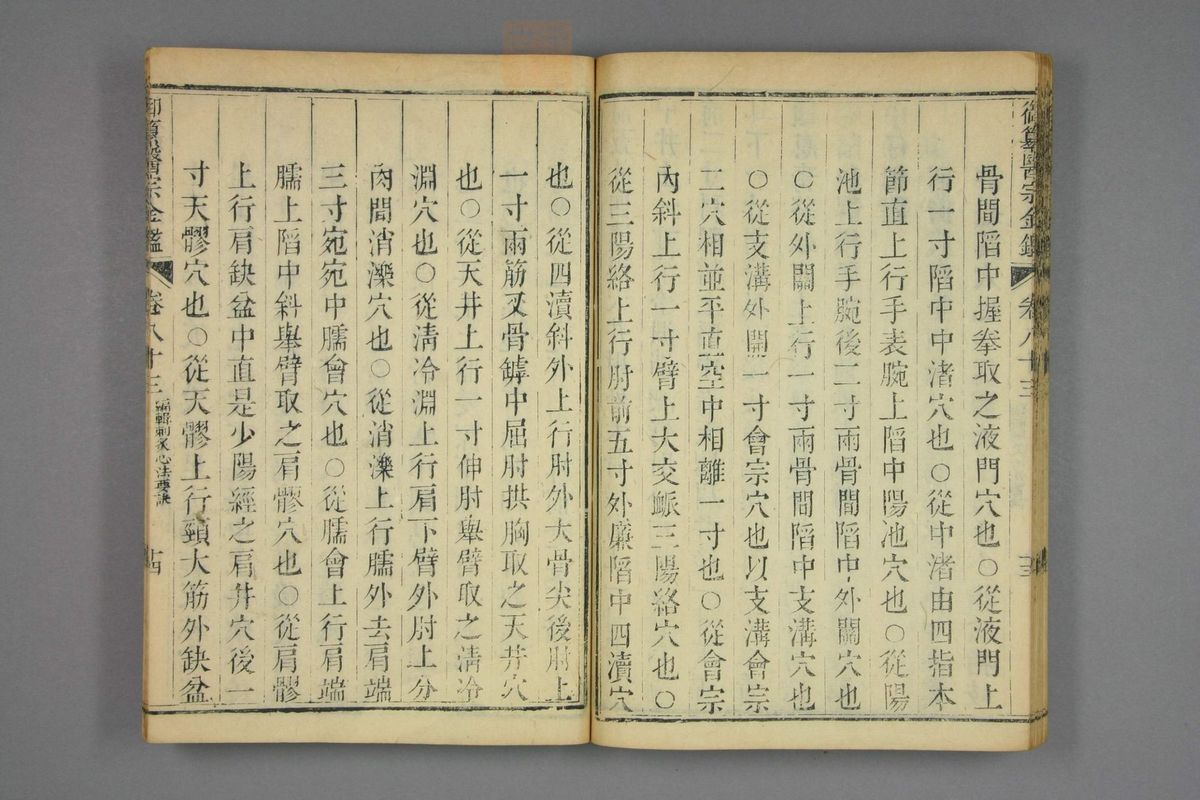 御纂醫宗金鑑 卷八十三
骨間陷中握拳取之液門穴也○從液門上
行一寸陷中中渚穴也○從中渚由四指本
節直上行手表腕上陷中陽池穴也○從陽
池上行手腕後二寸兩骨間陷中外關穴也
○從外關上行一寸兩骨間陷中支溝穴也
○從支溝外開一寸會宗穴也以支溝會宗
二穴相並平直空中相離一寸也○從會宗
內斜上行一寸臂上大交脈三陽絡穴也○
從三陽絡上行肘前五寸外廉陷中四瀆穴
也○從四瀆斜外上行肘外大骨尖後肘上
一寸兩筋叉骨罅中屈肘拱胸取之天井穴
也○從天井上行一寸伸肘舉臂取之清冷
淵穴也○從清冷淵上行肩下臂外肘上分
肉間消濼穴也○從消濼上行臑外去肩端
三寸宛宛中臑會穴也○從臑會上行肩端
臑上陷中斜舉臂取之肩髎穴也○從肩髎
上行肩缺盆中直是少陽經之肩井穴後一
寸天髎穴也○從天髎上行頸大筋外缺盆
御纂醫宗金鑑 卷八十三 編輯刺灸心法要訣 十四